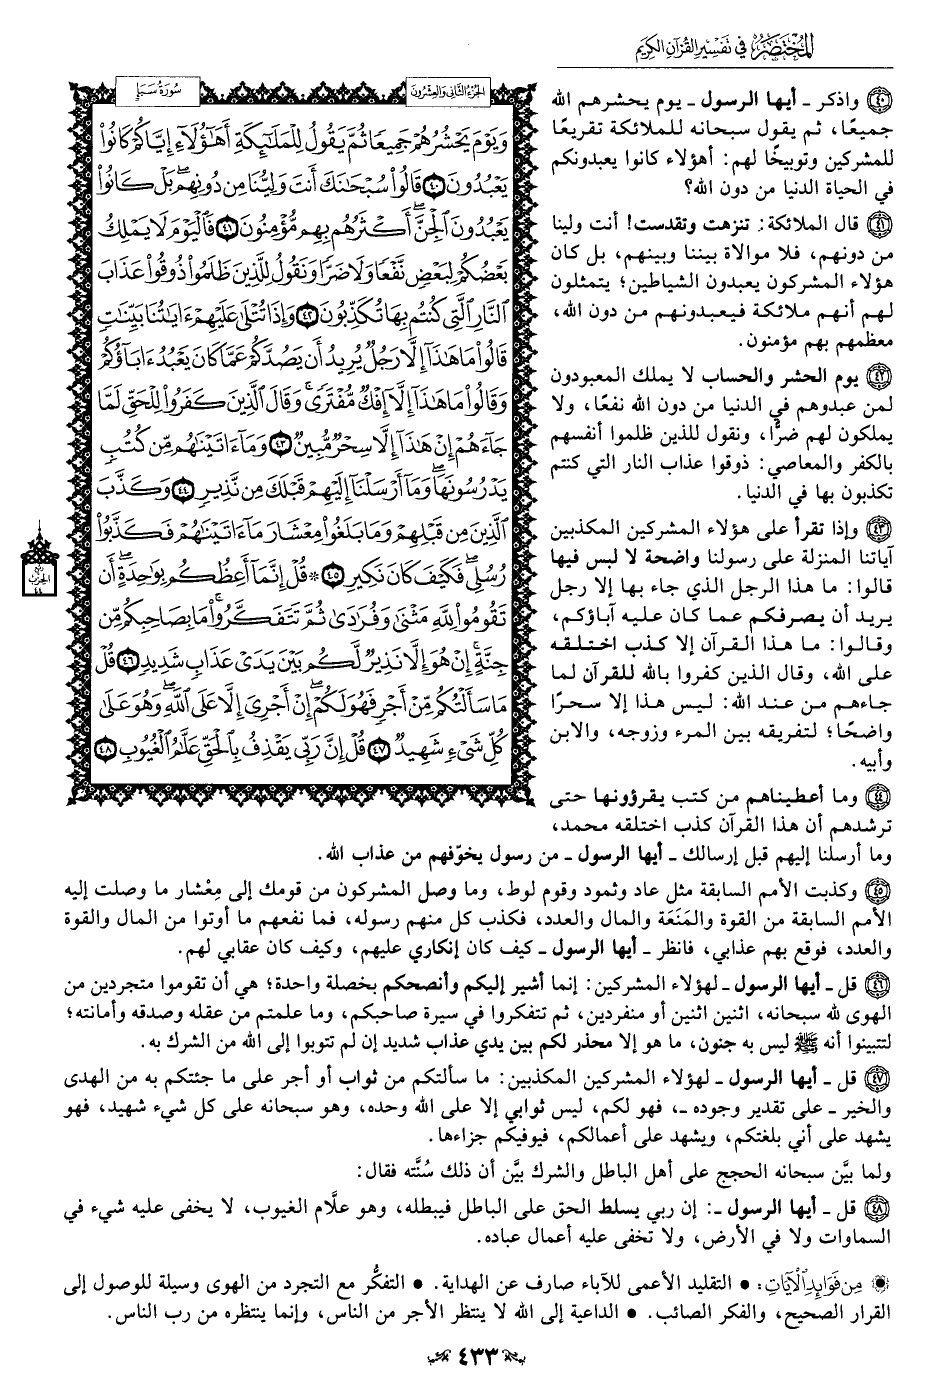 المختصر في تفسير القرآن الكريم
الجزء الثاني والعشرون
سورة سبإ
وَيَوْمَ يَحْشُرُهُمْ جَمِيعًا ثُمَّ يَقُولُ لِلْمَلَٰٓئِكَةِ أَهَٰٓؤُلَآءِ إِيَّاكُمْ كَانُوا۟
يَعْبُدُونَ ٤٠ قَالُوا۟ سُبْحَٰنَكَ أَنتَ وَلِيُّنَا مِن دُونِهِم ۖ بَلْ كَانُوا۟
يَعْبُدُونَ ٱلْجِنَّ ۖ أَكْثَرُهُم بِهِم مُّؤْمِنُونَ ٤١ فَٱلْيَوْمَ لَا يَمْلِكُ
بَعْضُكُمْ لِبَعْضٍ نَّفْعًا وَلَا ضَرًّا وَنَقُولُ لِلَّذِينَ ظَلَمُوا۟ ذُوقُوا۟ عَذَابَ
ٱلنَّارِ ٱلَّتِى كُنتُم بِهَا تُكَذِّبُونَ ٤٢ وَإِذَا تُتْلَىٰ عَلَيْهِمْ ءَايَٰتُنَا بَيِّنَٰتٍ
قَالُوا۟ مَا هَٰذَآ إِلَّا رَجُلٌ يُرِيدُ أَن يَصُدَّكُمْ عَمَّا كَانَ يَعْبُدُ ءَابَآؤُكُمْ
وَقَالُوا۟ مَا هَٰذَآ إِلَّآ إِفْكٌ مُّفْتَرًى ۚ وَقَالَ ٱلَّذِينَ كَفَرُوا۟ لِلْحَقِّ لَمَّا
جَآءَهُمْ إِنْ هَٰذَآ إِلَّا سِحْرٌ مُّبِينٌ ٤٣ وَمَآ ءَاتَيْنَٰهُم مِّن كُتُبٍ
يَدْرُسُونَهَا ۖ وَمَآ أَرْسَلْنَآ إِلَيْهِمْ قَبْلَكَ مِن نَّذِيرٍ ٤٤ وَكَذَّبَ
ٱلَّذِينَ مِن قَبْلِهِمْ وَمَا بَلَغُوا۟ مِعْشَارَ مَآ ءَاتَيْنَٰهُمْ فَكَذَّبُوا۟
رُسُلِى ۖ فَكَيْفَ كَانَ نَكِيرِ ٤٥ ۞ قُلْ إِنَّمَآ أَعِظُكُم بِوَٰحِدَةٍ ۖ أَن
تَقُومُوا۟ لِلَّهِ مَثْنَىٰ وَفُرَٰدَىٰ ثُمَّ تَتَفَكَّرُوا۟ ۚ مَا بِصَاحِبِكُم مِّن
جِنَّةٍ ۚ إِنْ هُوَ إِلَّا نَذِيرٌ لَّكُم بَيْنَ يَدَىْ عَذَابٍ شَدِيدٍ ٤٦ قُلْ
مَا سَأَلْتُكُم مِّنْ أَجْرٍ فَهُوَ لَكُمْ ۖ إِنْ أَجْرِىَ إِلَّا عَلَى ٱللَّهِ ۖ وَهُوَ عَلَىٰ
كُلِّ شَىْءٍ شَهِيدٌ ٤٧ قُلْ إِنَّ رَبِّى يَقْذِفُ بِٱلْحَقِّ عَلَّٰمُ ٱلْغُيُوبِ ٤٨
ربع
الحزب
٤٤
٤٠ واذكر ـ أيها الرسول ـ يوم يحشرهم الله
جميعًا، ثم يقول سبحانه للملائكة تقريعًا
للمشركين وتوبيخًا لهم: أهؤلاء كانوا يعبدونكم
في الحياة الدنيا من دون الله؟
٤١ قال الملائكة: تنزهت وتقدست! أنت ولينا
من دونهم، فلا موالاة بيننا وبينهم، بل كان
هؤلاء المشركون يعبدون الشياطين؛ يتمثلون
لهم أنهم ملائكة فيعبدونهم من دون الله،
معظمهم بهم مؤمنون.
٤٢ يوم الحشر والحساب لا يملك المعبودون
لمن عبدوهم في الدنيا من دون الله نفعًا، ولا
يملكون لهم ضرًّا، ونقول للذين ظلموا أنفسهم
بالكفر والمعاصي: ذوقوا عذاب النار التي كنتم
تكذبون بها في الدنيا.
٤٣ وإذا تقرأ على هؤلاء المشركين المكذبين
آياتنا المنزلة على رسولنا واضحة لا لبس فيها
قالوا: ما هذا الرجل الذي جاء بها إلا رجل
يريد أن يصرفكم عما كان عليه آباؤكم،
وقالوا: ما هذا القرآن إلا كذب اختلقه
على الله، وقال الذين كفروا بالله للقرآن لما
جاءهم من عند الله: ليس هذا إلا سحرًا
واضحًا؛ لتفريقه بين المرء وزوجه، والابن
وأبيه.
٤٤ وما أعطيناهم من كتب يقرؤونها حتى
ترشدهم أن هذا القرآن كذب اختلقه محمد،
وما أرسلنا إليهم قبل إرسالك ـ أيها الرسول ـ من رسول يخوّفهم من عذاب الله.
٤٥ وكذبت الأمم السابقة مثل عاد وثمود وقوم لوط، وما وصل المشركون من قومك إلى مِعْشار ما وصلت إليه
الأمم السابقة من القوة والمَنَعَة والمال والعدد، فكذب كل منهم رسوله، فما نفعهم ما أوتوا من المال والقوة
والعدد، فوقع بهم عذابي، فانظر ـ أيها الرسول ـ كيف كان إنكاري عليهم، وكيف كان عقابي لهم.
٤٦ قل ـ أيها الرسول ـ لهؤلاء المشركين: إنما أشير إليكم وأنصحكم بخصلة واحدة؛ هي أن تقوموا متجردين من
الهوى لله سبحانه، اثنين اثنين أو منفردين، ثم تتفكروا في سيرة صاحبكم، وما علمتم من عقله وصدقه وأمانته؛
لتتبينوا أنه ﷺ ليس به جنون، ما هو إلا محذر لكم بين يدي عذاب شديد إن لم تتوبوا إلى الله من الشرك به.
٤٧ قل ـ أيها الرسول ـ لهؤلاء المشركين المكذبين: ما سألتكم من ثواب أو أجر على ما جئتكم به من الهدى
والخير ـ على تقدير وجوده ـ، فهو لكم، ليس ثوابي إلا على الله وحده، وهو سبحانه على كل شيء شهيد، فهو
يشهد على أني بلغتكم، ويشهد على أعمالكم، فيوفيكم جزاءها.
ولما بيَّن سبحانه الحجج على أهل الباطل والشرك بيَّن أن ذلك سُنَّته فقال:
٤٨ قل ـ أيها الرسول ـ: إن ربي يسلط الحق على الباطل فيبطله، وهو علَّام الغيوب، لا يخفى عليه شيء في
السماوات ولا في الأرض، ولا تخفى عليه أعمال عباده.
من فوائد الآيات: • التقليد الأعمى للآباء صارف عن الهداية. • التفكُّر مع التجرد من الهوى وسيلة للوصول إلى
القرار الصحيح، والفكر الصائب. • الداعية إلى الله لا ينتظر الأجر من الناس، وإنما ينتظره من رب الناس.
٤٣٣